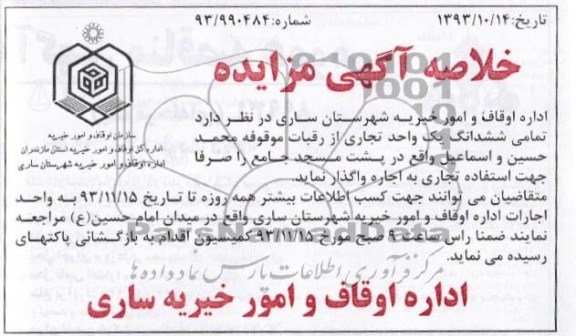 تاریخ:۱۳۹۳/۱۰/۱۴
شماره:۹۳/۹۹۰۴۸۴
خلاصه آگهی مزایده
سازمان اوقاف و امور خیریه
اداره کل اوقاف و امور خیریه استان مازندران
اداره اوقاف و امور خیریه شهرستان ساری
اداره اوقاف و امور خیریه شهرستان ساری در نظر دارد
تمامی ششدانگ یک واحد تجاری از رقبات موقوفه محمد
حسین و اسماعیل واقع در پشت مسجد جامع را صرفا
جهت استفاده تجاری به اجاره واگذار نماید.
متقاضیان می توانند جهت کسب اطلاعات بیشتر همه روزه تا تاریخ ۹۳/۱۱/۱۵ به واحد
اجارات اداره اوقاف و امور خیریه شهرستان ساری واقع در میدان امام حسین(ع) مراجعه
نمایند ضمنا راس ساعت ۹ صبح مورخ ۹۳/۱۱/۱۵ کمیسیون اقدام به بازگشائی پاکتهای
رسیده می نماید.
ParsNamadData
مرکز فرآوری اطلاعات پارس نماد داده ها
اداره اوقاف و امور خیریه ساری